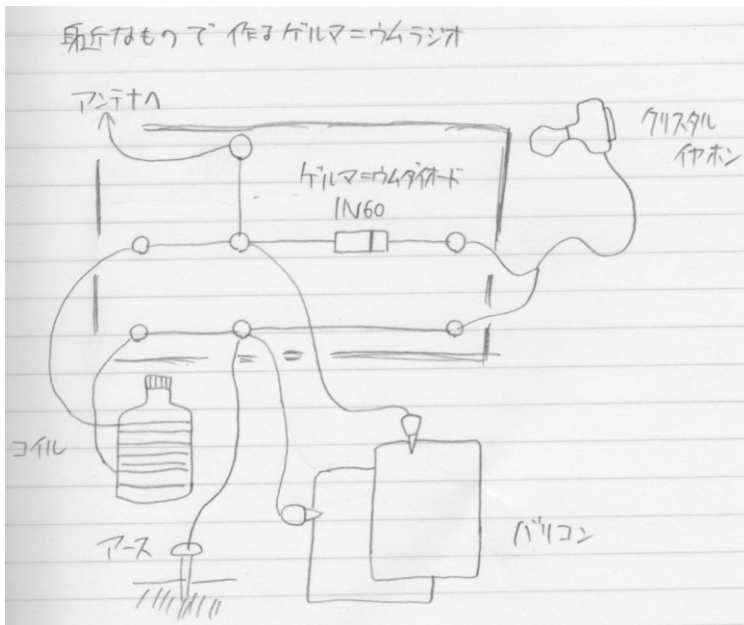 身近なもので作るゲルマニウムラジオ
アンテナへ
クリスタル
イヤホン
ゲルマニウムダイオード
1N60
コイル
アース
バリコン